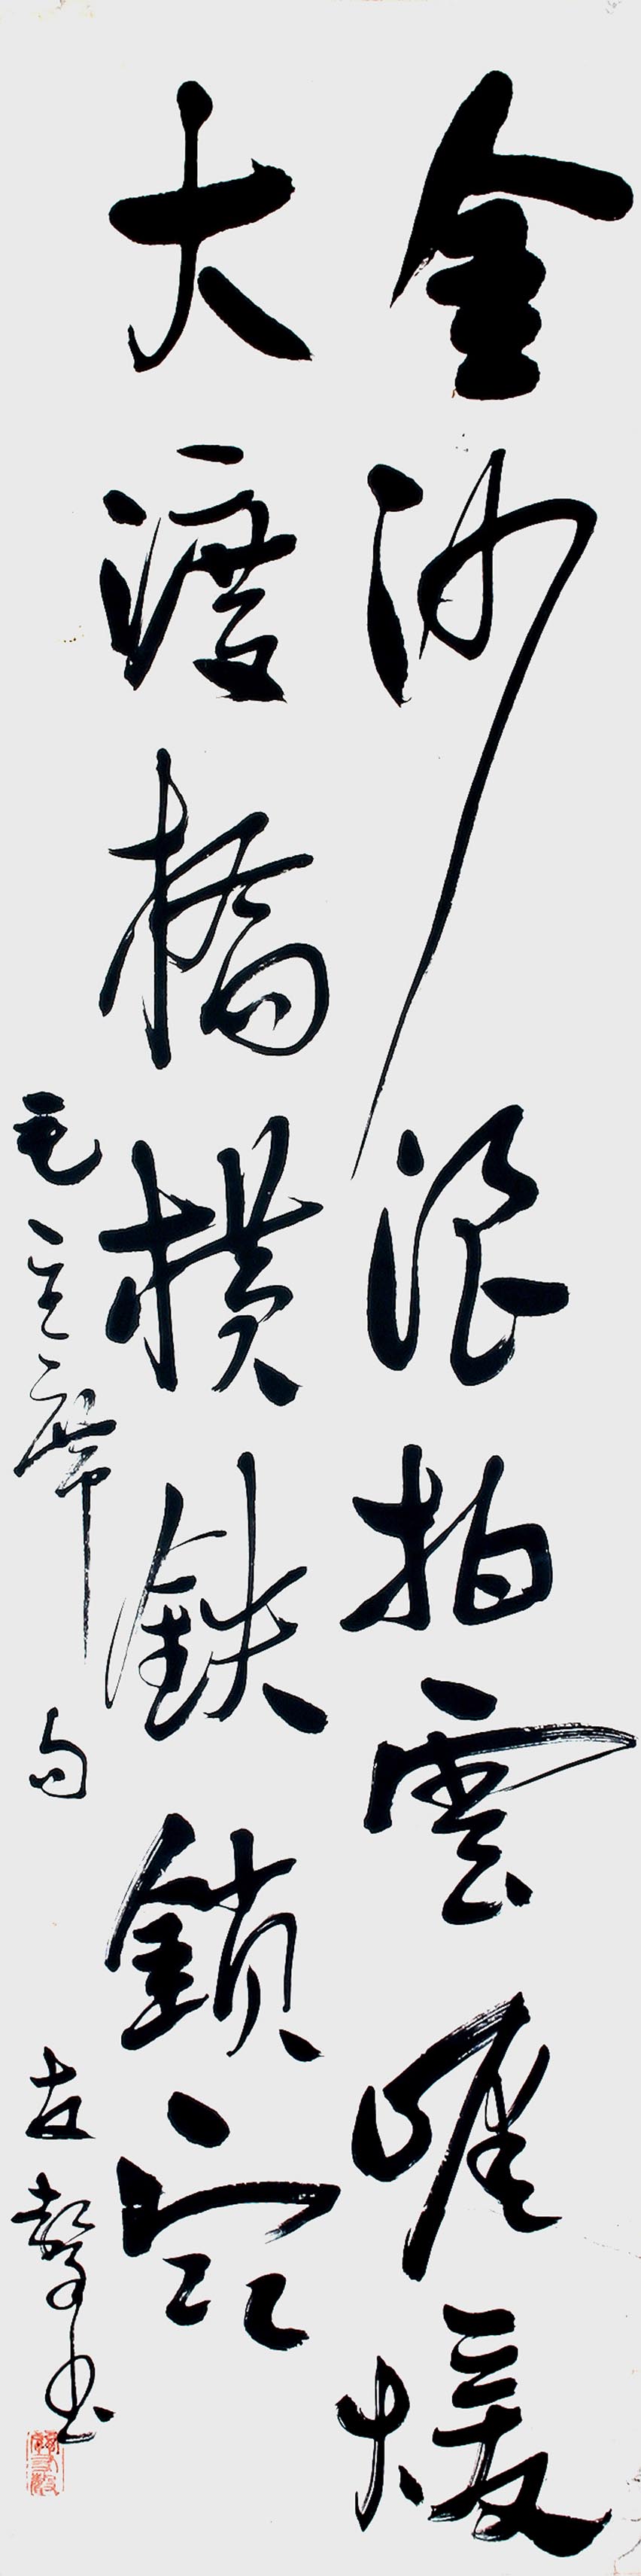 金沙浪拍雲崖煖
大渡橋横鉄鎖寒
毛主席句
友書